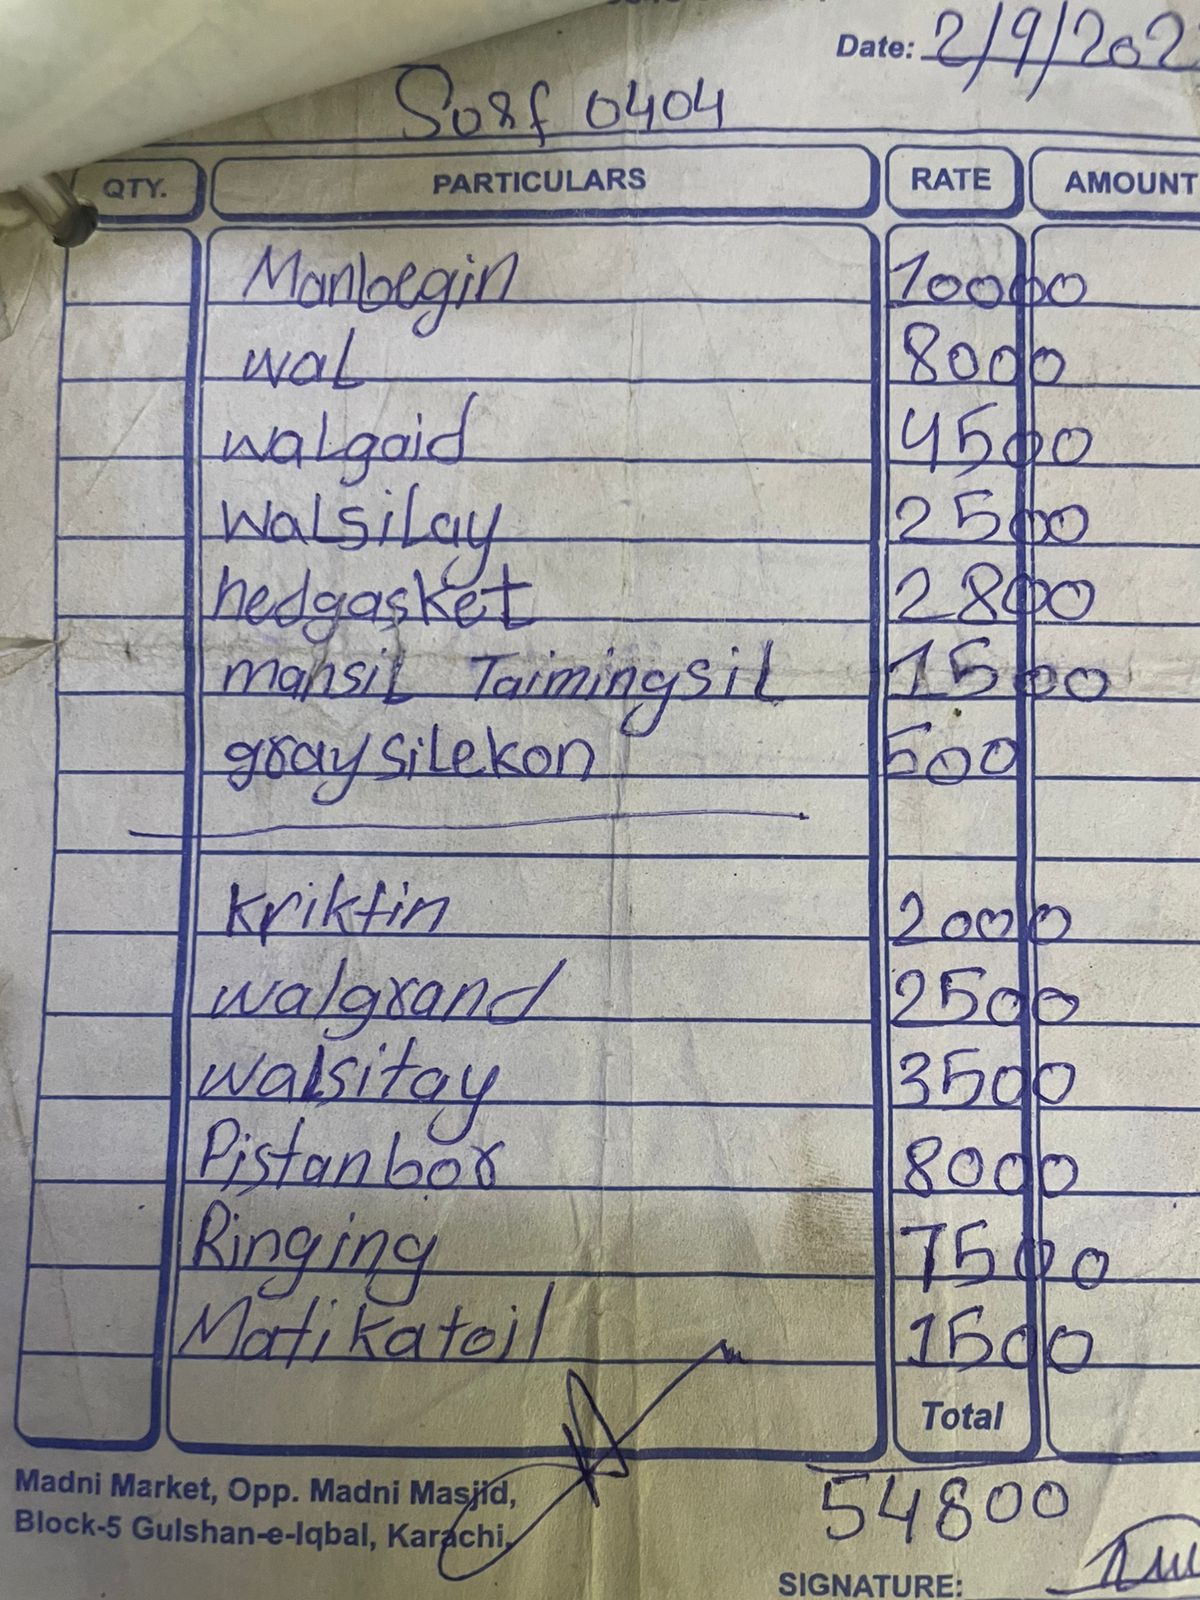 Date: 2/9/202
Sorf 0404
QTY. PARTICULARS RATE AMOUNT
Manbegin 10000
wal 8000
walgaid 4500
walsilay 2500
hedgasket 2800
mansil Taimingsil 1500
graysilekon 500
kriktin 2000
walgrand 2500
walsitay 3500
Pistanbor 8000
Ringing 7500
Matikatoil 1500
Total
54800
Madni Market, Opp. Madni Masjid,
Block-5 Gulshan-e-Iqbal, Karachi.
SIGNATURE: